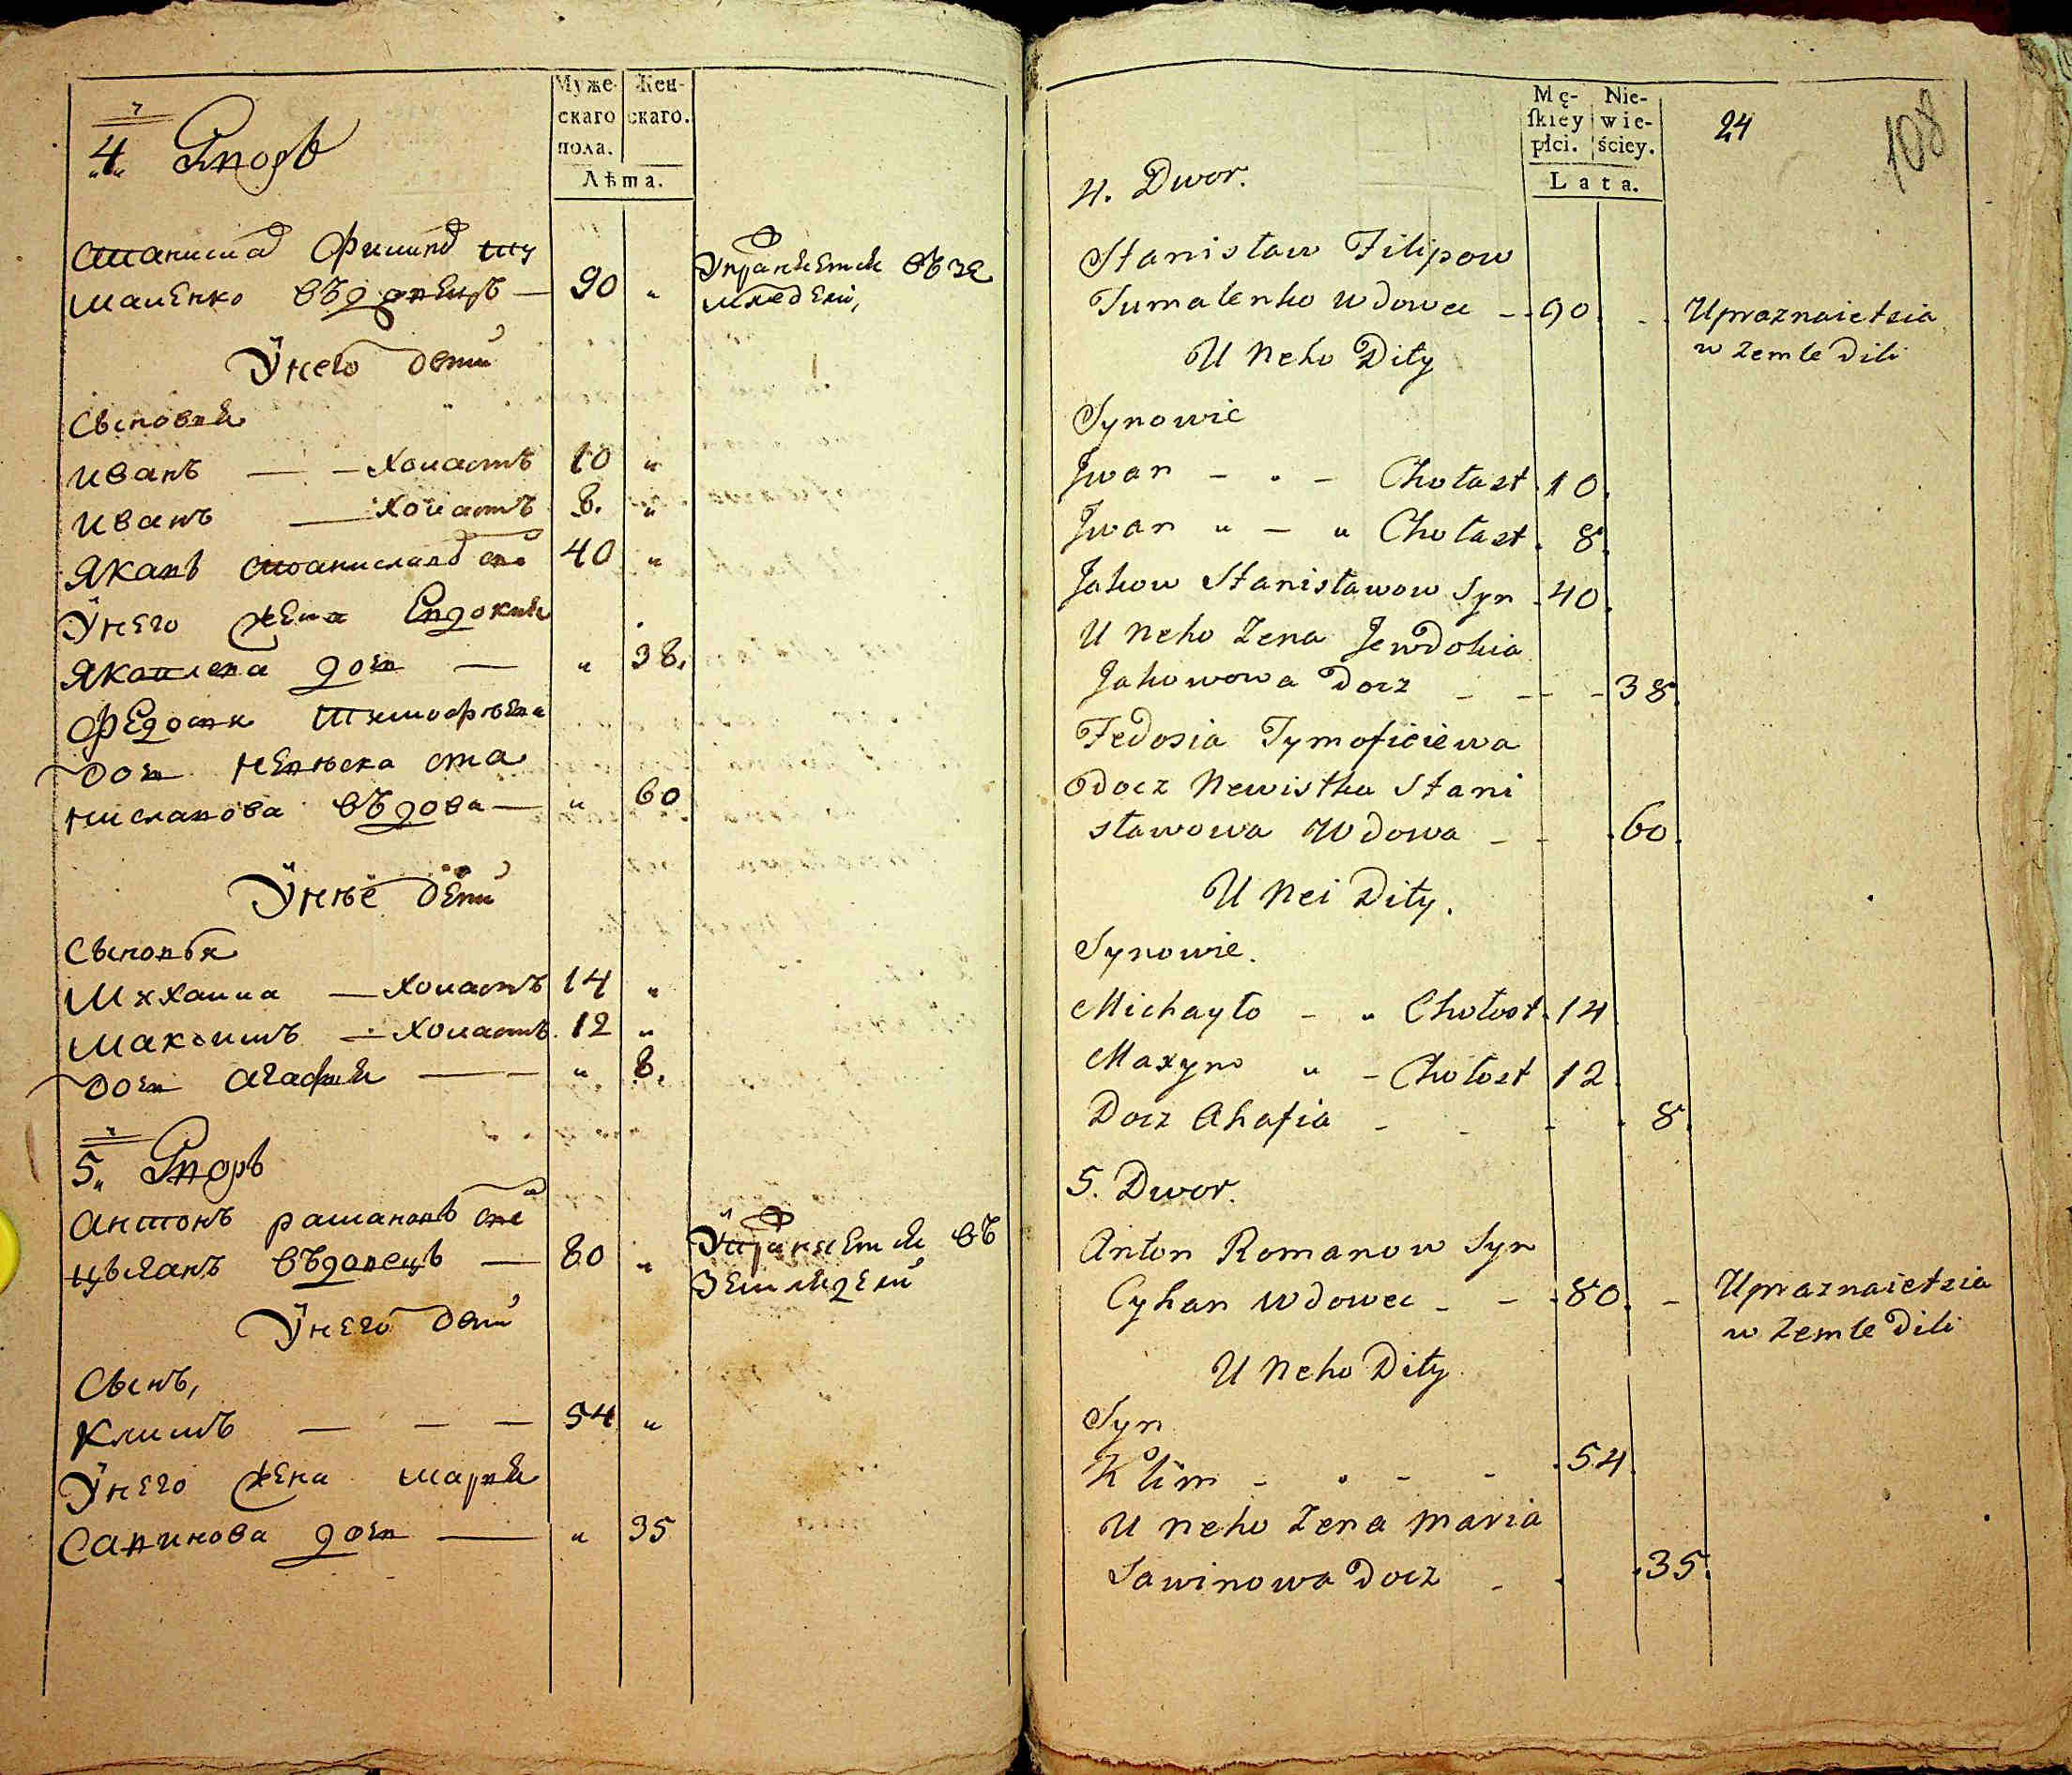 Муже-
скаго
пола.
Жен-
скаго.
Лѣта.
4 Дворъ
Станислав Филипов Ту
маленко въдовецъ — 90 "
Упражняется въ зе
мледели,
У него дети
Сыновя
Иванъ — — холастъ 10 "
Иванъ — холастъ 8. "
Яковъ Станиславов сн 40 "
У него жена Евдокия
Яковлева доч — " 38.
Федосия Тимофѣева
доч невѣска Ста
нисла­вова въдова — " 60
У нѣе дети
Сыновья
Михаила — холастъ 14 "
Максимъ — холастъ 12 "
доч Агафия — — " 8.
5 Дворъ
Антонъ Раманов сн
Цыганъ въдовецъ — 80 "
Упражняется въ
земледели
У него дети
Сынъ,
Климъ — — — 54 "
У него жена Мария
Савинова доч — " 35
Mę-
ſkiey
płci.
Nie-
wie-
ściey.
Lata.
24
108
4. Dwor.
Stanisław Filipow
Tumalenko Wdowec - - 90. -
Uprażnaietsia
w Zemle Dili
U Neho Dity
Synowie
Jwan - . - Chołast 10.
Jwan " - " Chołast. 8.
Jakow Stanisławow Syn 40.
U Neho Zena Jewdokia
Jakowowa Docz - - - 38.
Fedosia Tymofieiewa
Docz Newistka Stani
sławowa Wdowa - - .60.
U Nei Dity.
Synowie.
Michayło - " Chołost. 14
Maxym " - Chołost 12.
Docz Ahafia - - - . 8.
5. Dwor.
Anton Romanow Syn
Cyhan Wdowec - - .80. -
Uprażnaietsia
w Zemle Dili
U Neho Dity
Syn
Klim - . - - .54.
U Neho Zena Maria
Sawinowa Docz - . .35.